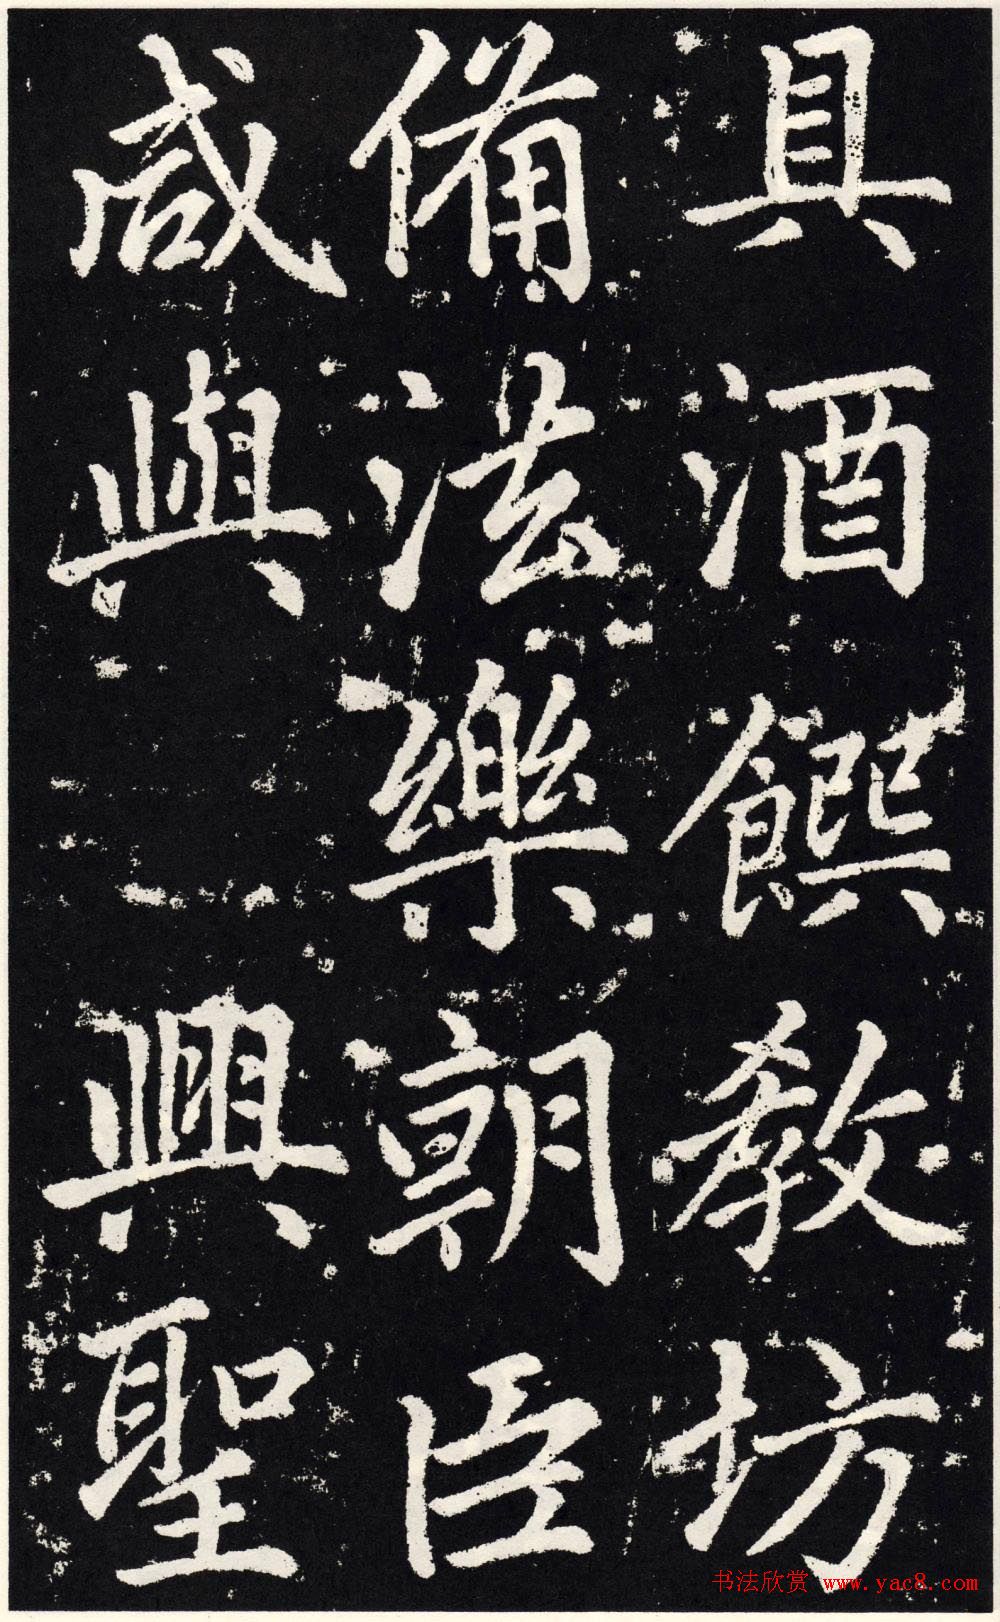 具酒饌教坊
備法樂朝臣
咸與興聖
书法欣赏 www.yac8.com